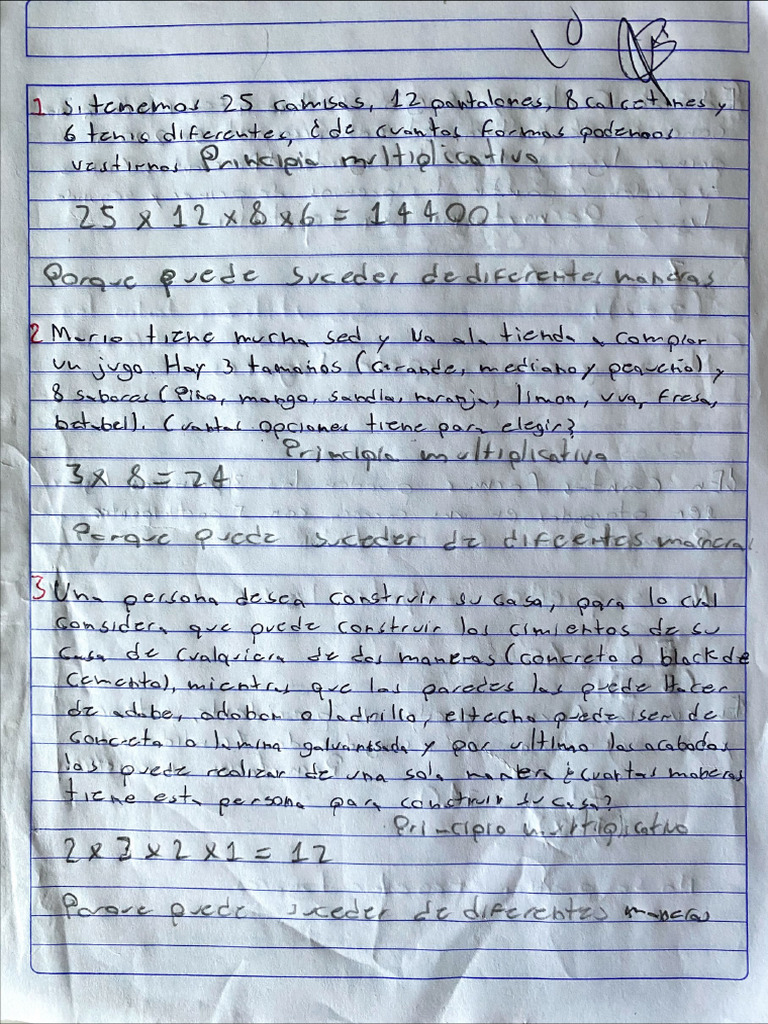 10
1 Si tenemos 25 camisas, 12 pantalones, 8 calcetines y
6 tenis diferentes, ¿de cuantas formas podemos
vestirnos Principio multiplicativo
25 x 12 x 8 x 6 = 14400
Porque puede suceder de diferentes maneras
2 Mario tiene mucha sed y va a la tienda a comprar
un jugo Hay 3 tamaños (Grande, mediano y pequeño) y
8 sabores (Piña, mango, sandia, naranja, limon, uva, fresa,
betabel). Cuantas opciones tiene para elegir?
Principio multiplicativo
3 x 8 = 24
Porque puede suceder de difeentes maneras
3 Una persona desea construir su casa, para lo cual
considera que puede construir los cimientos de su
casa de cualquiera de dos maneras (concreto o block de
cemento), mientras que las paredes las puede Hacer
de adobe, adobon o ladrillo, el techo puede ser de
concreto o lamina galvanisada y por ultimo los acabados
los puede realizar de una sola manera ¿cuantas maneras
tiene esta persona para construir su casa?
Principio multiplicativo
2 x 3 x 2 x 1 = 12
Porque puede suceder de diferentes maneras